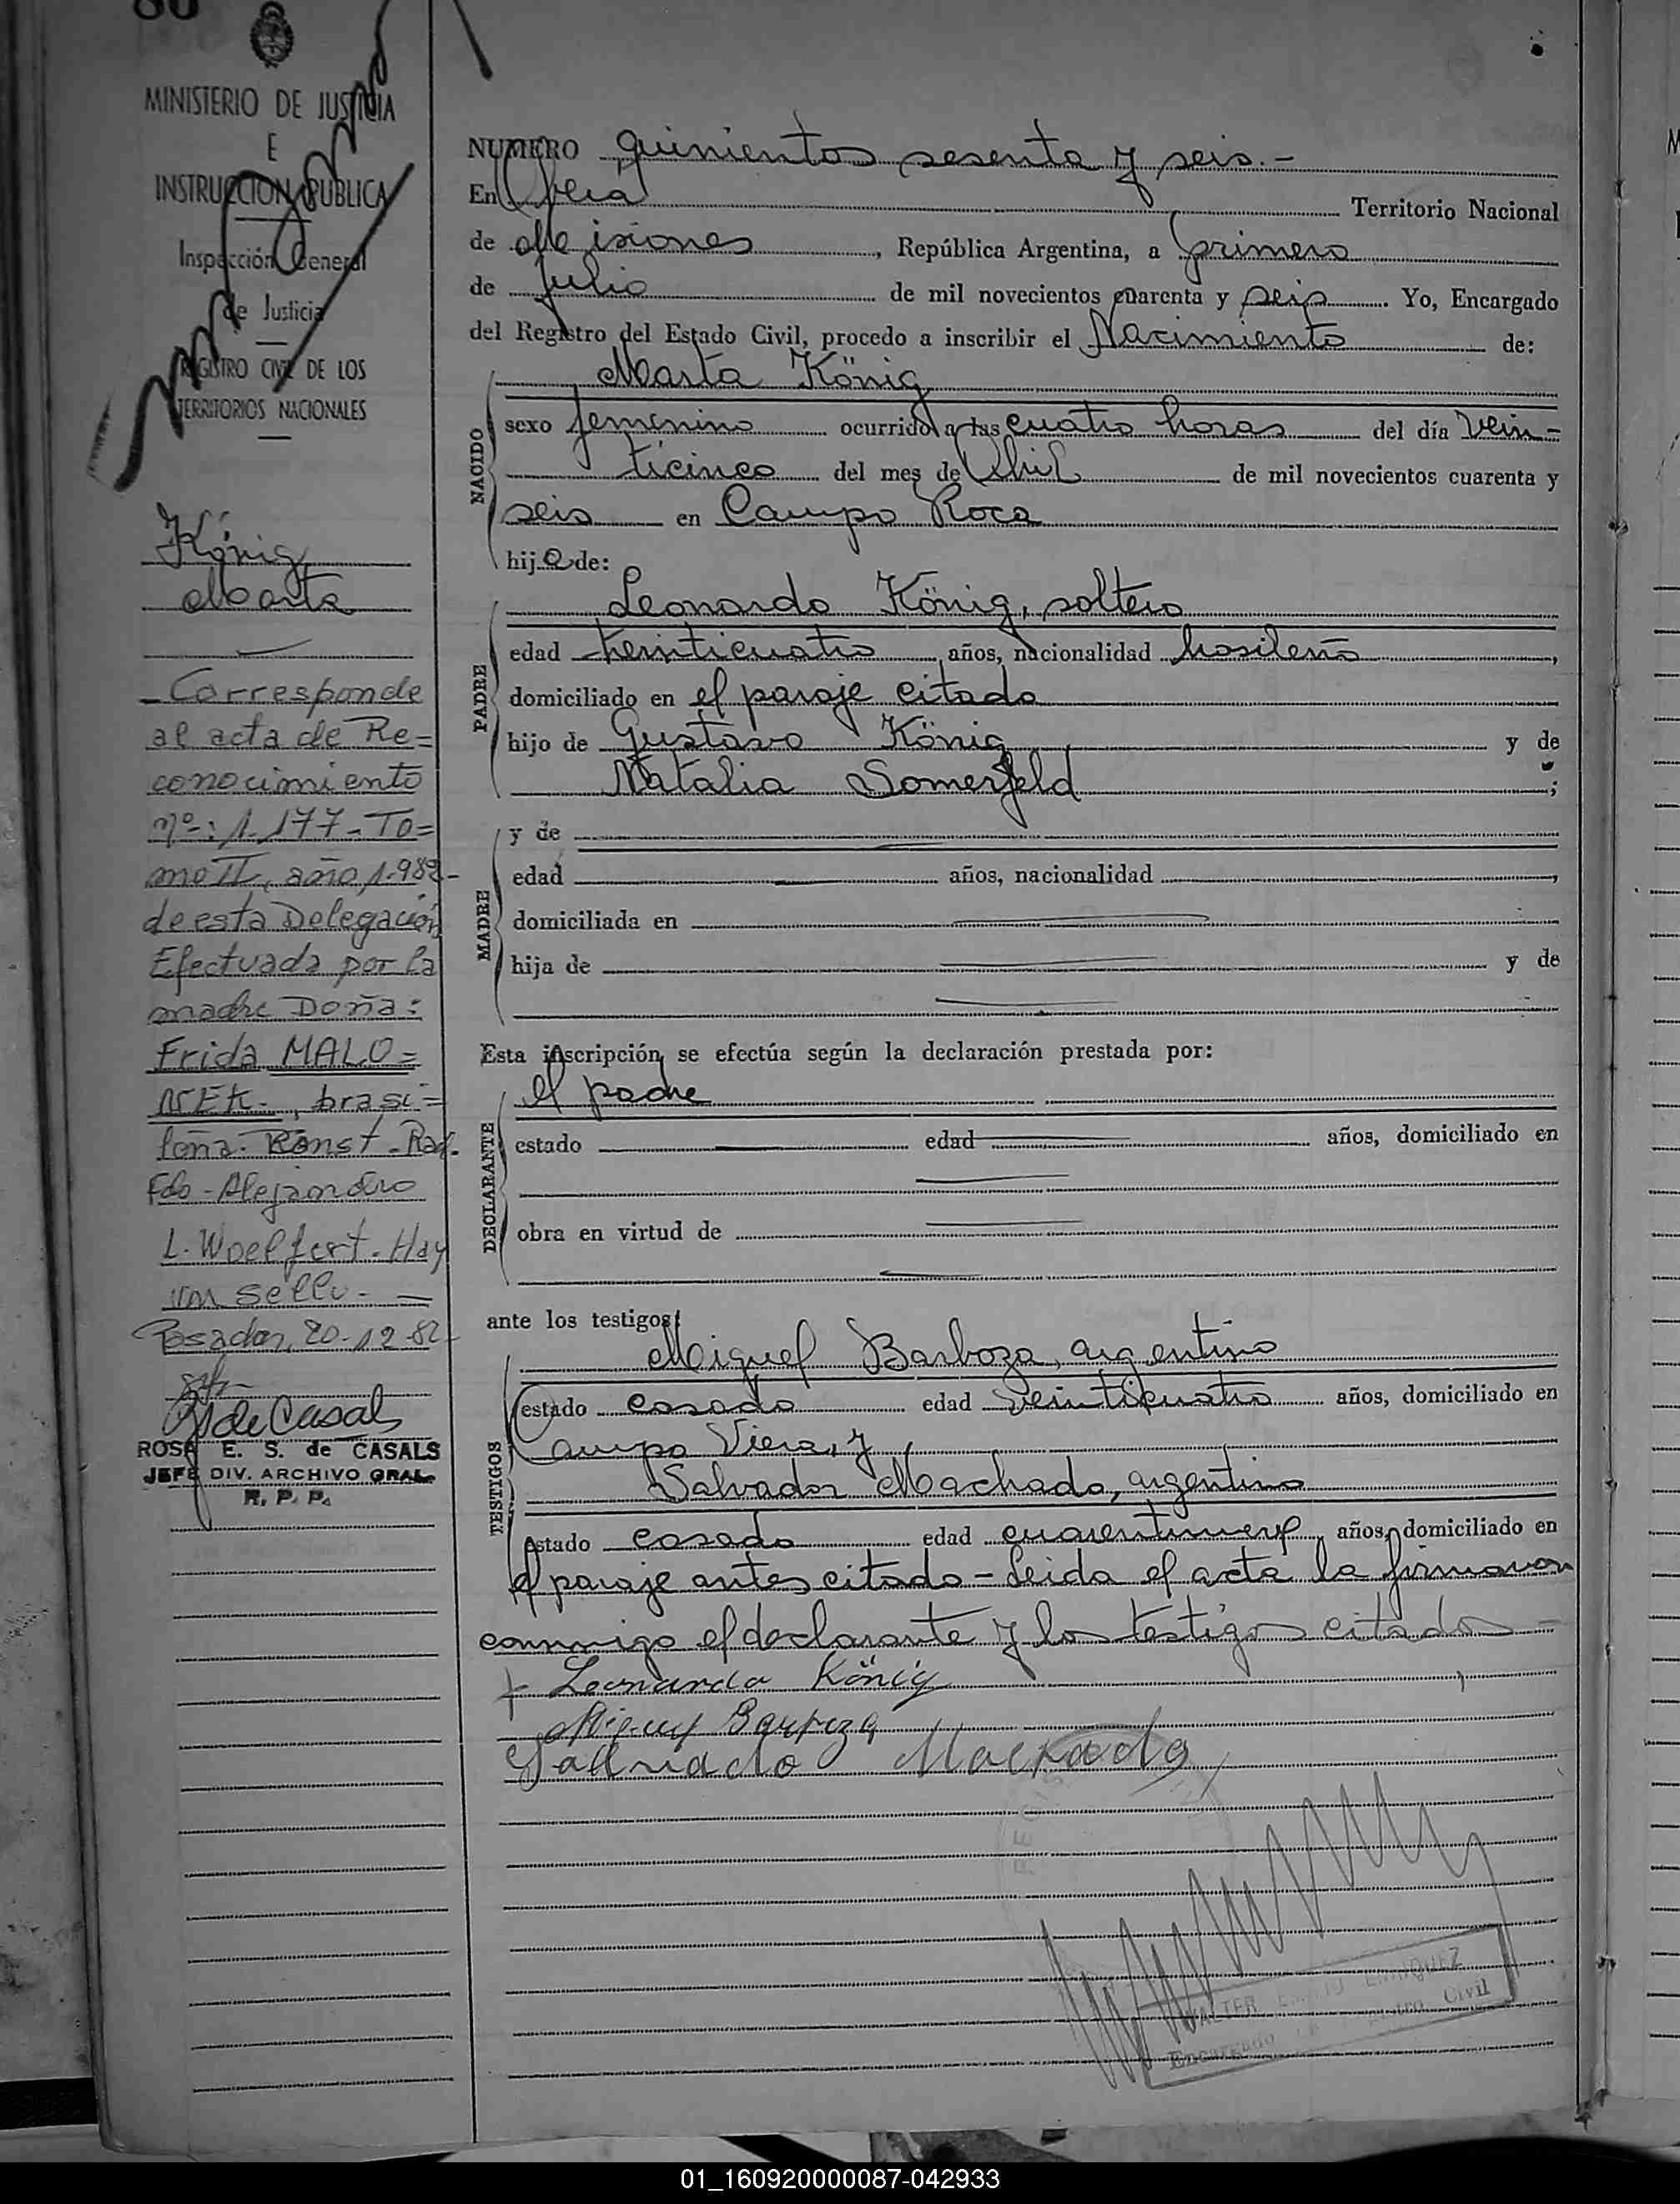 80
MINISTERIO DE JUSTICIA
E
INSTRUCCION PUBLICA
Inspección General
de Justicia
REGISTRO CIVIL DE LOS
TERRITORIOS NACIONALES
König
Marta
- Corresponde
al acta de Re=
conocimiento
nº: 1.177 - To=
mo II, año 1.982-
de esta Delegación
Efectuada por la
madre Doña:
Frida MALO=
NEK-, brasi=
leña. Const. Rad.
Fdo - Alejandro
L. Woelfert. Hay
un sello. -
Posadas, 20-12-82-
de Casals
ROSA E. S. de CASALS
JEFE DIV. ARCHIVO GRAL.
R. P. P.
NUMERO quinientos sesenta y seis.-
En Oberá Territorio Nacional
de Misiones, República Argentina, a primero
de Julio de mil novecientos cuarenta y seis. Yo, Encargado
del Registro del Estado Civil, procedo a inscribir el Nacimiento de:
NACIDO
Marta König
sexo femenino ocurrido a las cuatro horas del día vein-
ticinco del mes de Abril de mil novecientos cuarenta y
seis en Campo Roca
hija de:
PADRE
Leonardo König, soltero
edad veinticuatro años, nacionalidad brasileño,
domiciliado en el paraje citado
hijo de Gustavo König y de
Natalia Somerfeld;
MADRE
y de
edad años, nacionalidad,
domiciliada en
hija de y de
Esta inscripción se efectúa según la declaración prestada por:
DECLARANTE
el padre
estado edad años, domiciliado en
obra en virtud de
ante los testigos:
TESTIGOS
Miguel Barboza, argentino
estado casado edad veinticuatro años, domiciliado en
Campo Viera, y
Salvador Machado, argentino
estado casado edad cuarentinueve años, domiciliado en
el paraje antes citado - Leida el acta la firmaron
conmigo el declarante y los testigos citados -
+ Leonardo König
Miguel Barboza
Salvado Machado
Encargado Civil
01_160920000087-042933